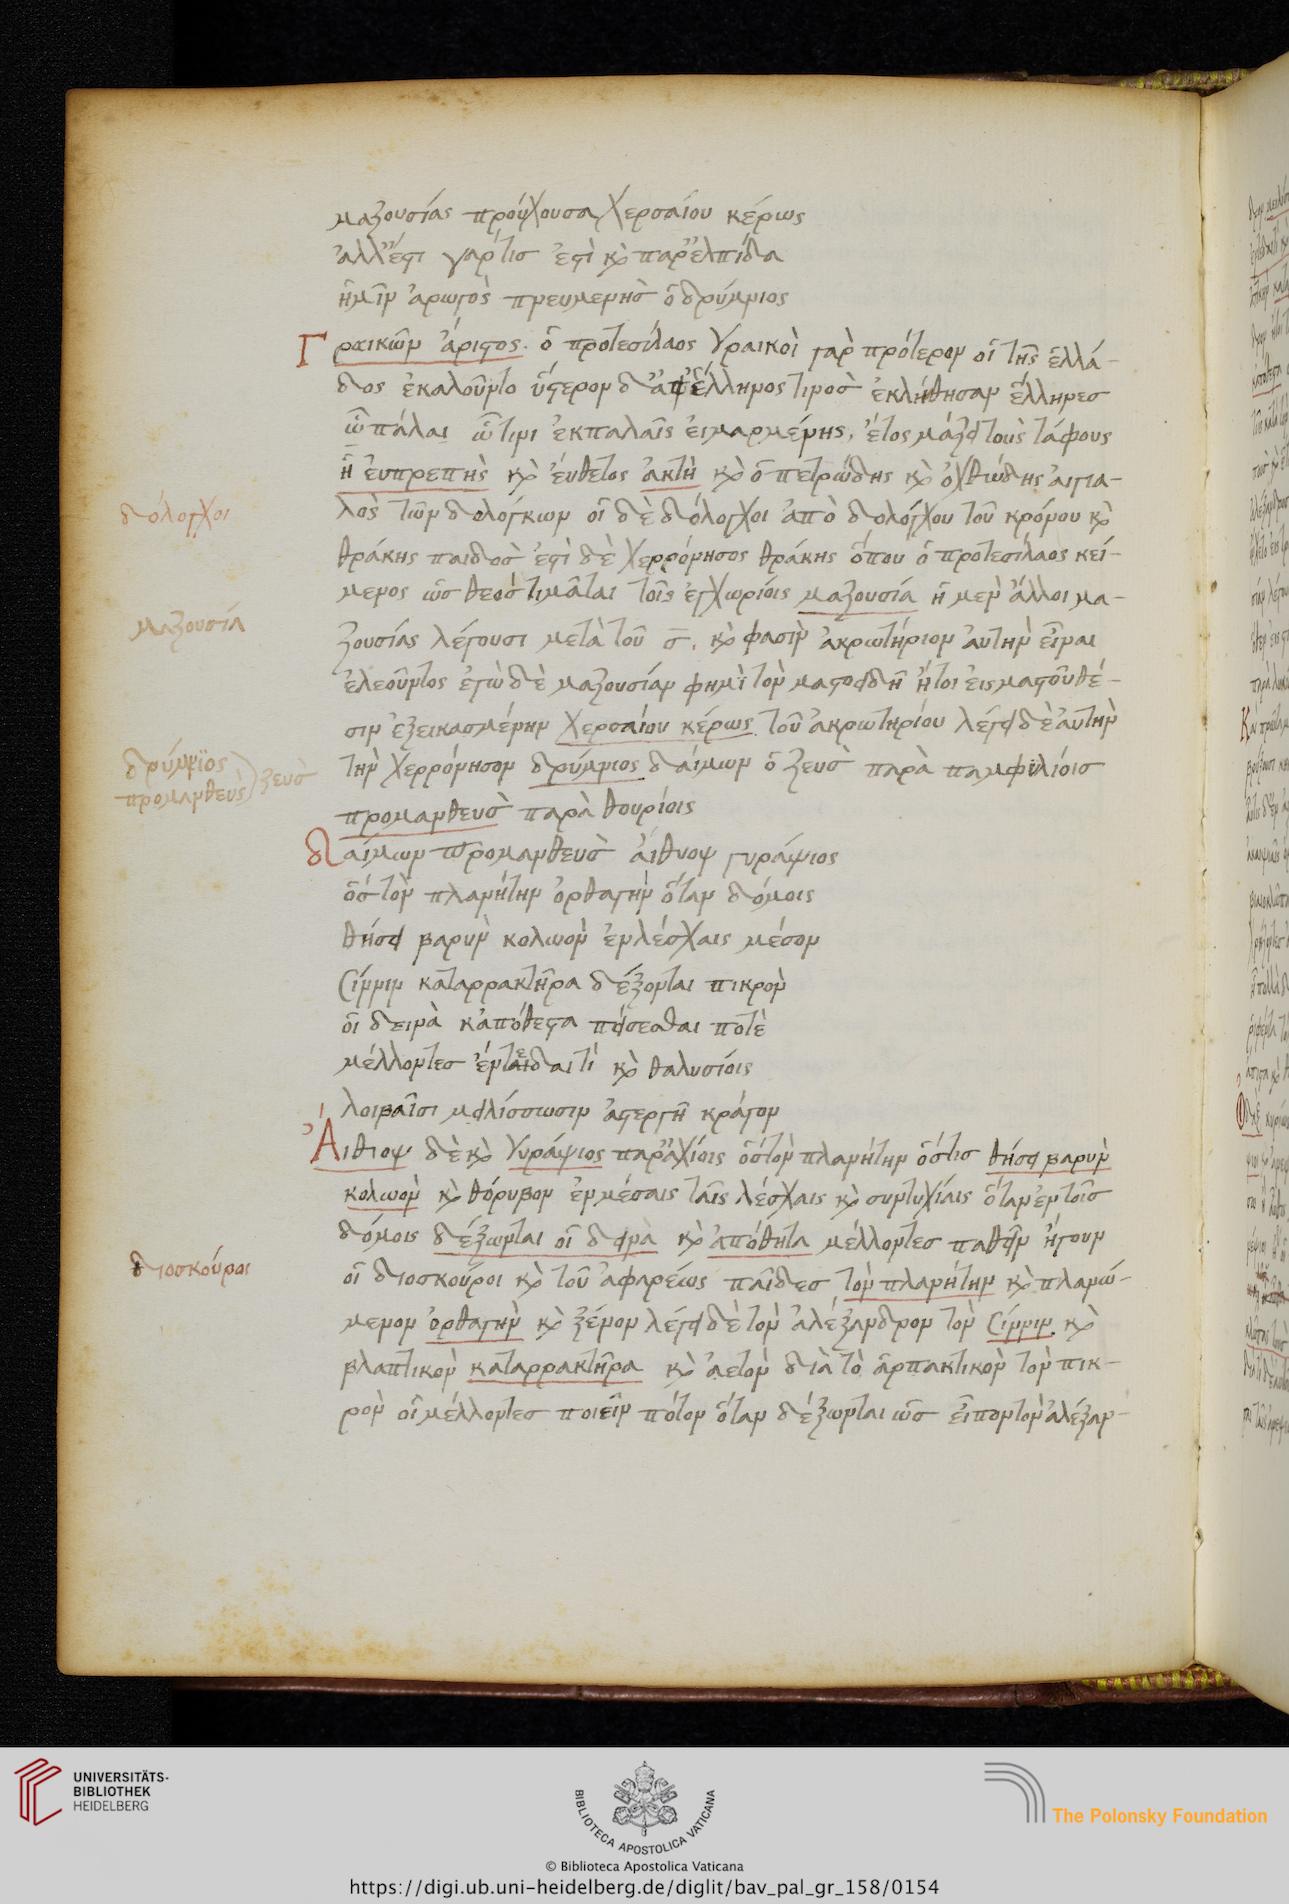 μαζουσίας προύχουσα χερσαίου κέρως
ἀλλ' ἔστι γάρ τις ἐστὶ καὶ παρ' ἐλπίδα
ἡμῖν ἀρωγὸς πρευμενὴς ὁ δρύμνιος
Γραικῶν ἄριστος. ὁ πρωτεσίλαος γραικοὶ γὰρ πρότερον οἱ τῆς ἑλλά-
δος ἐκαλοῦντο ὕστερον δ' ἀφ' ἕλληνος τινὸς ἐκλήθησαν ἕλληνες
ᾧ πάλαι ᾧτινι ἐκ παλαιᾶς εἱμαρμένης,
ἡ εὐπρεπὴς καὶ εὔθετος ἀκτὴ καὶ ὁ πετρώδης καὶ ὀχθώδης αἰγια-
δόλογχοι
λὸς τῶν δολόγκων οἱ δὲ δόλογχοι ἀπὸ δολόγχου τοῦ κρόνου καὶ
θράκης παιδὸς ἐστὶ δὲ χερρόνησος θράκης ὅπου ὁ πρωτεσίλαος κεί-
μενος ὡς θεὸς τιμᾶται τοῖς ἐγχωρίοις μαζουσία ἣ μὲν ἄλλοι μα-
μαζουσία
ζουσίας λέγουσι μετὰ τοῦ σ. καὶ φασὶν ἀκρωτήριον αὐτὴν εἶναι
ἐλεοῦντος ἐγὼ δὲ μαζουσίαν φημὶ τὴν μαστοειδῆ ἤτοι εἰς μαστοῦ θέ-
σιν ἐξεικασμένην χερσαίου κέρως τοῦ ἀκρωτηρίου λέγει δὲ αὐτὴν
δρύμνιος
προμανθεὺς ζεὺς
τὴν χερρόνησον δρύμνιος δαίμων ὁ ζεὺς παρὰ παμφυλίοις
προμανθεὺς παρὰ θουρίοις
δαίμων προμανθεὺς αἰθυοψ γυράψιος
ὃς τὸν πλανήτην ὀρθάγην ὅταν δόμοις
θήσει βαρὺν κολωὸν ἐν λέσχαις μέσον
σίννιν καταρρακτῆρα δέξονται πικρὸν
οἱ δεινὰ κἀπόθεστα πείσεσθαι ποτὲ
μέλλοντες ἔν τε δαιτὶ καὶ θαλυσίοις
λοιβαῖσι μειλίσσωσιν ἀστεργῆ κράγον
Αἰθίοψ δὲ καὶ γυράψιος παρὰ χίοις ὃς τὸν πλανήτην ὅστις θήσει βαρὺν
κολωὸν καὶ θόρυβον ἐν μέσαις ταῖς λέσχαις καὶ συντυχίαις ὅταν ἐν τοῖς
δόμοις δέξωνται οἱ δεινὰ καὶ ἀπόθητα μέλλοντες παθεῖν ἤγουν
διοσκούροι
οἱ διοσκούροι καὶ τοῦ ἀφαρέως παῖδες τὸν πλανήτην καὶ πλανώ-
μενον ὀρθάγην καὶ ξένον λέγει δὲ τὸν ἀλέξανδρον τὸν σίννιν καὶ
βλαπτικὸν καταρρακτῆρα καὶ ἀετὸν διὰ τὸ ἁρπακτικὸν τὸν πικ-
ρὸν οἱ μέλλοντες ποιεῖν πότον ὅταν δέξωνται ὡς εἶπον τὸν ἀλέξαν-
UNIVERSITÄTS-
BIBLIOTHEK
HEIDELBERG
BIBLIOTECA APOSTOLICA VATICANA
The Polonsky Foundation
© Biblioteca Apostolica Vaticana
https://digi.ub.uni-heidelberg.de/diglit/bav_pal_gr_158/0154